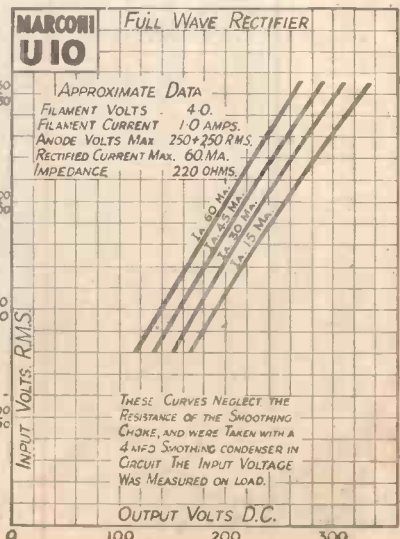 MARCONI
U 10
FULL WAVE RECTIFIER
APPROXIMATE DATA
FILAMENT VOLTS 4·0.
FILAMENT CURRENT 1·0 AMPS.
ANODE VOLTS MAX 250+250 RMS.
RECTIFIED CURRENT MAX. 60 MA.
IMPEDANCE 220 OHMS.
IA. 60 MA.
IA. 45 MA.
IA. 30 MA.
IA. 15 MA.
INPUT VOLTS. R.M.S.
THESE CURVES NEGLECT THE
RESISTANCE OF THE SMOOTHING
CHOKE, AND WERE TAKEN WITH A
4 MFD SMOTHING CONDENSER IN
CIRCUIT THE INPUT VOLTAGE
WAS MEASURED ON LOAD.
OUTPUT VOLTS D.C.
0 100 200 300